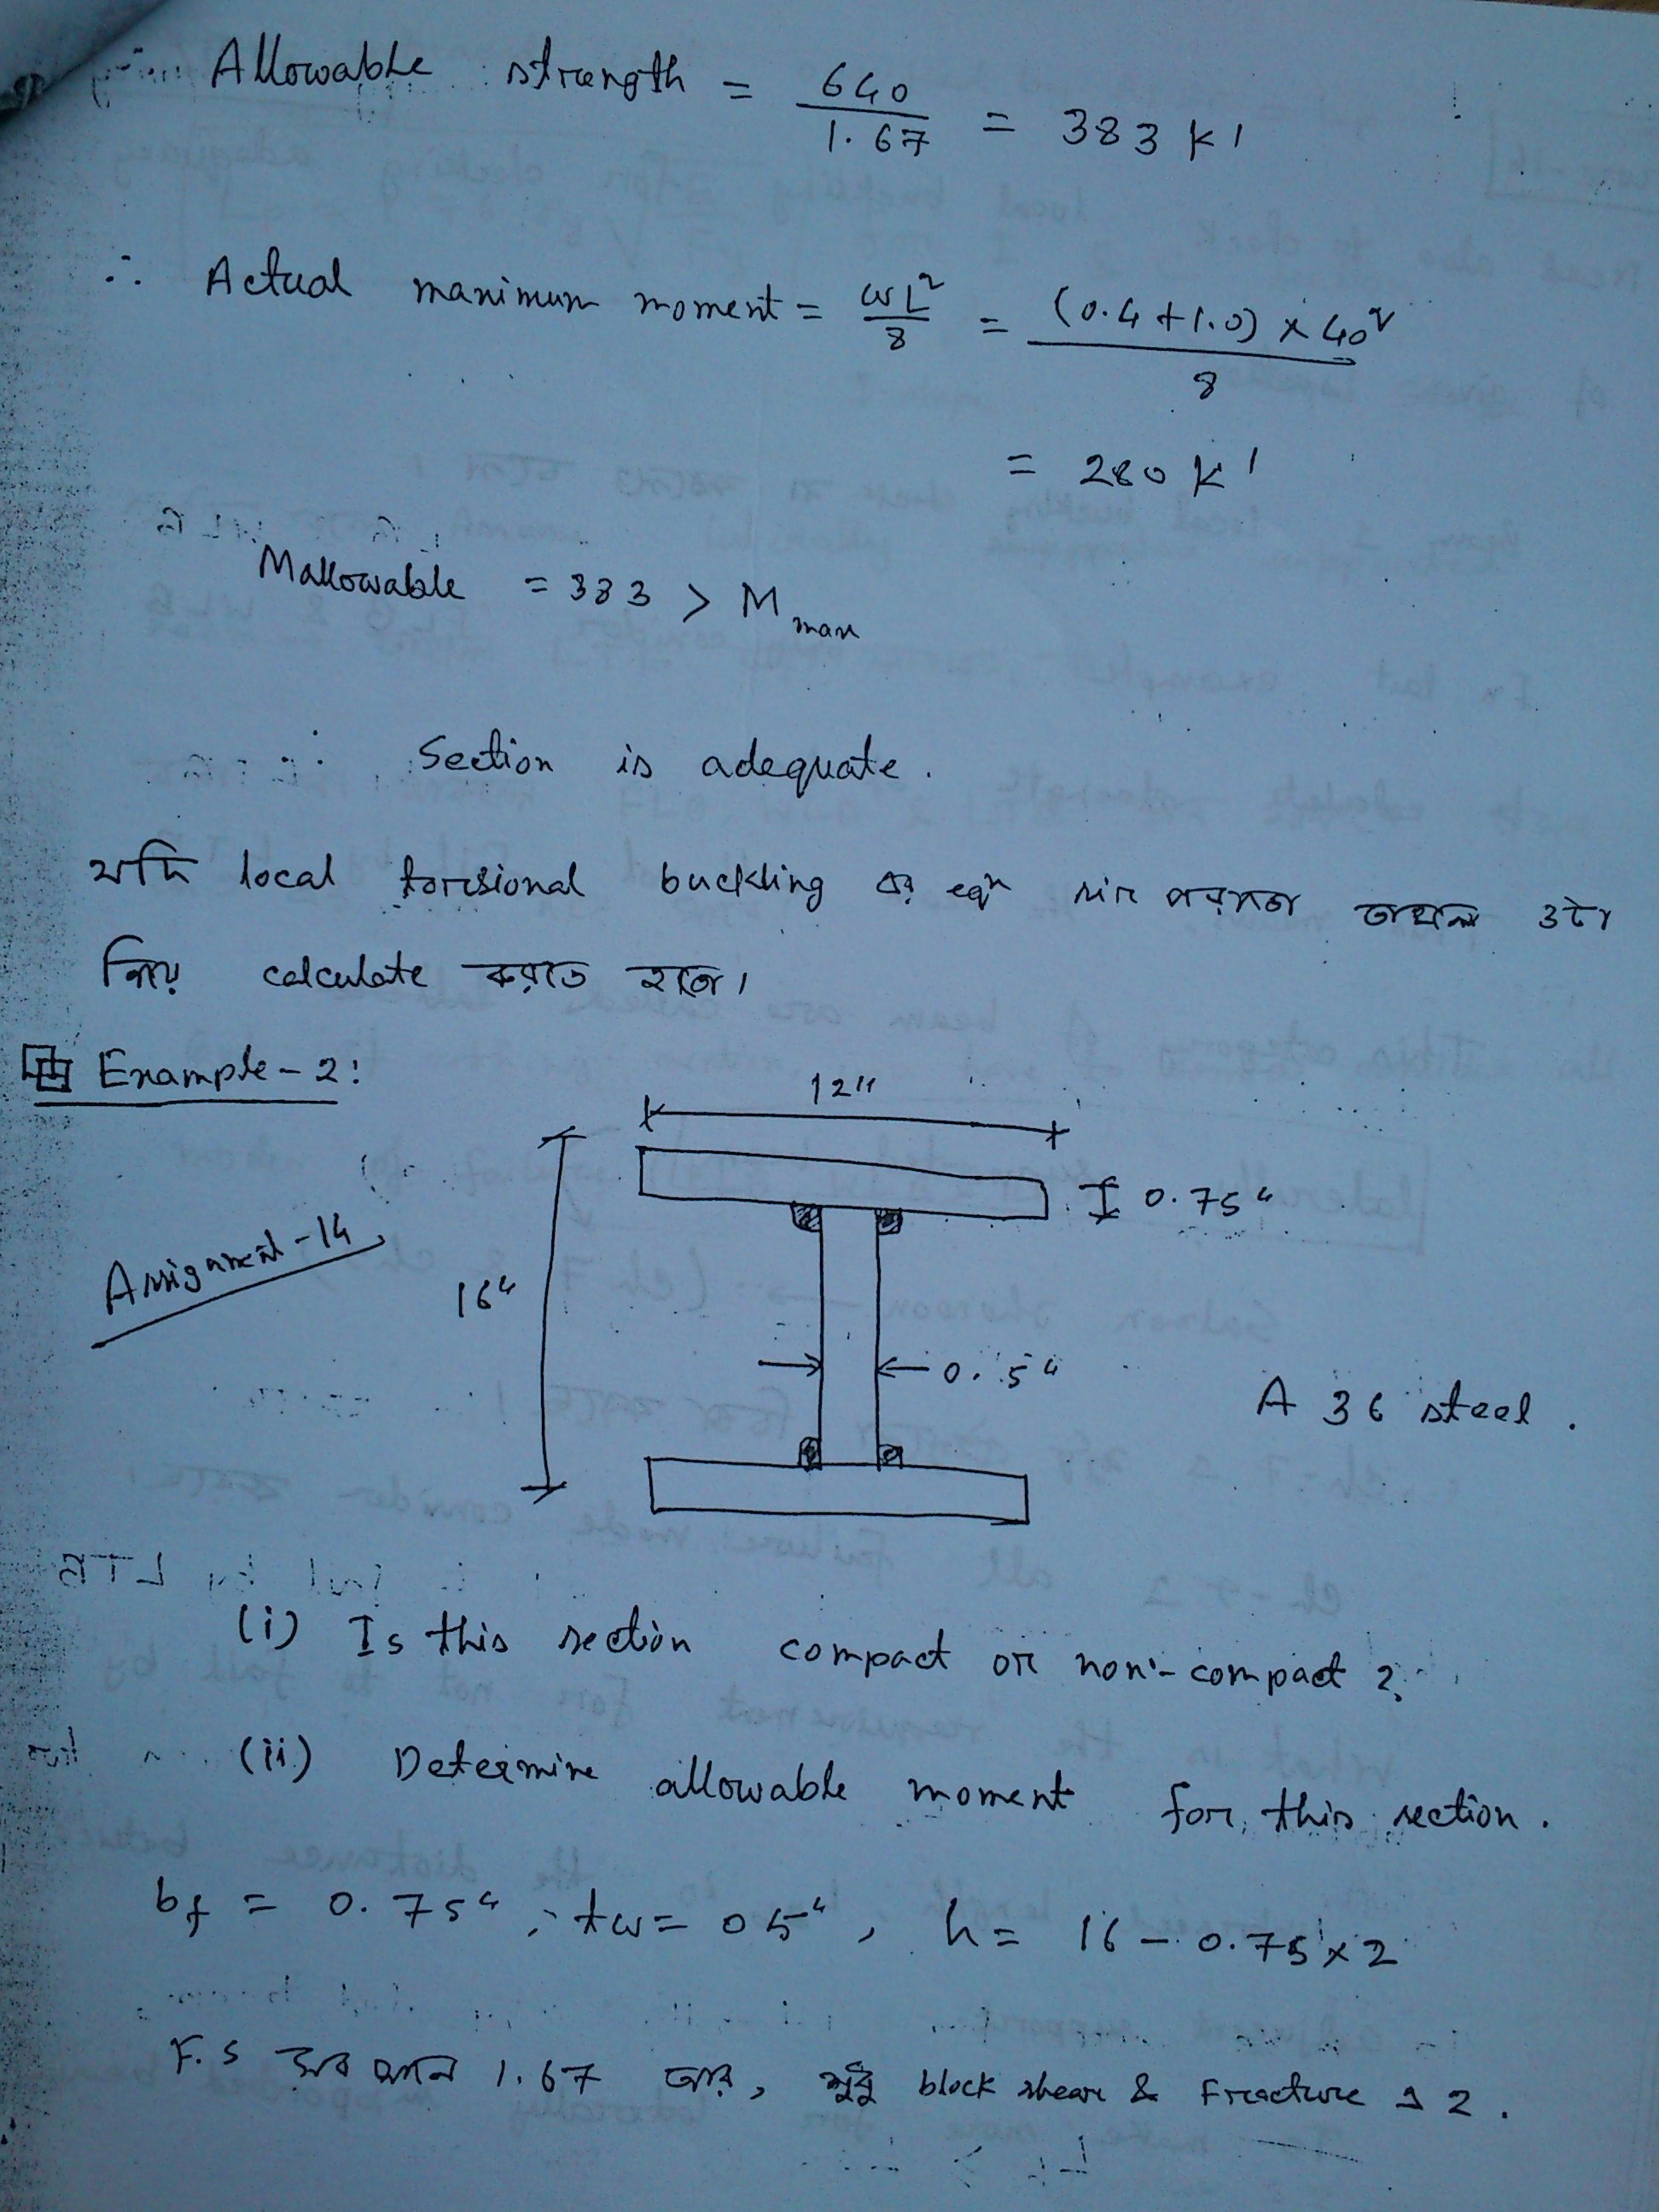 ∴ Allowable strength = 640/1.67 = 383 k'
∴ Actual maximum moment = wL²/8 = (0.4+1.0) × 40²/8
= 280 k'
Mallowable = 383 > Mmax
∴ Section is adequate.
যদি local torsional buckling এর eqⁿ দিয়ে তাহলে ওটা
নিয়ে calculate করতে হবে।
Example-2:
12"
0.75"
Assignment-14
16"
0.5"
A 36 steel.
(i) Is this section compact or non-compact?
(ii) Determine allowable moment for this section.
bf = 0.75", tw = 05", h = 16 - 0.75 × 2
F.S সব 1.67 আর, শুধু block shear & Fracture এ 2.